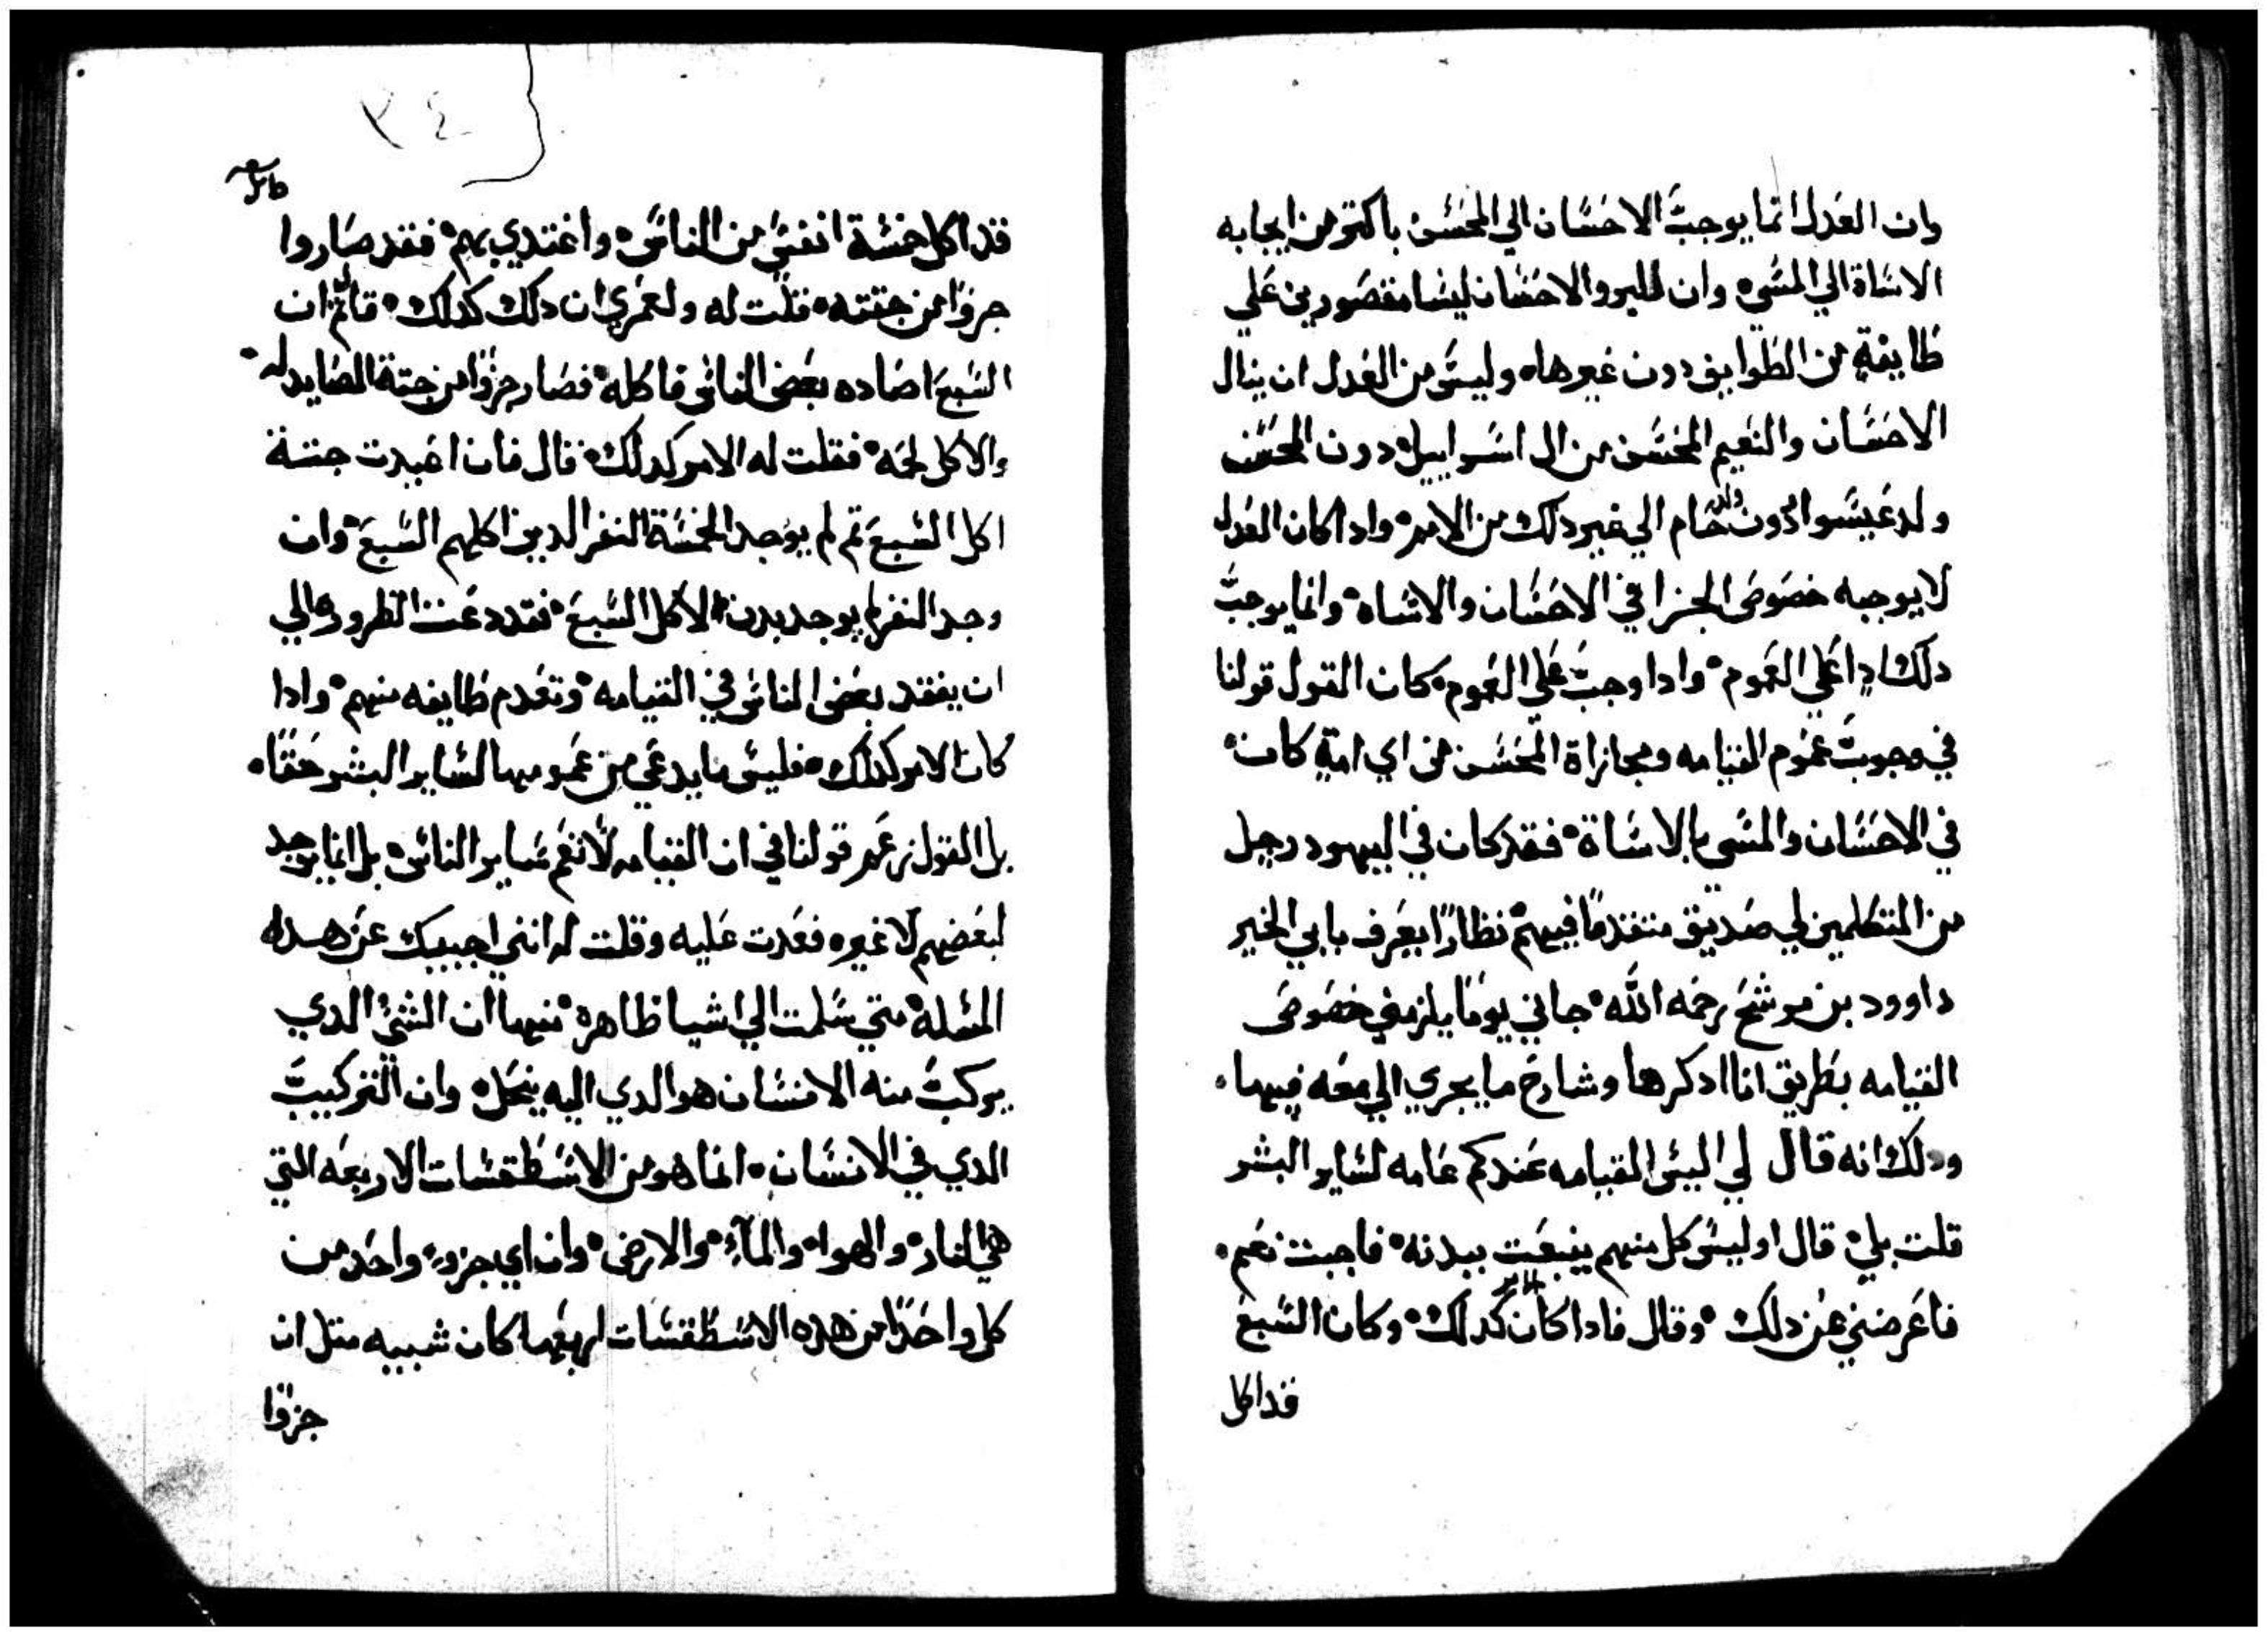 وان العدل انما يوجب الاحسان الي المحسن باكتر من ايجابه
الاساة الي المسي وان الخير والاحسان ليسا مقصورين علي
طايفة من الطوايف دون غيرها وليس من العدل ان ينال
الاحسان والنعيم المحسن من ال اسراييل دون المحسن
ولد عيسوا دون ولد حام الي غير دلك من الامم وادا كان العدل
لا يوجبه خصوص الجزا في الاحسان والاساه وانما يوجب
دلك ادا علي العموم وادا وجب علي العموم كان القول قولنا
في وجوب عموم القيامه ومجازاة المحسن من اي امة كان
في الاحسان والمسي بالاساة فقد كان في اليهود رجل
من المتكلمين لي صديق متقدما فيهم نظارا يعرف بابي الخير
داوود بن موشج رحمه الله جاني يوما يلزمني خصوص
القيامه بطريق انا ادكرها وشارح ما يجري الي معه فيها
ودلك انه قال لي اليس القيامه عندكم عامه لساير البشر
قلت بلي قال اوليس كل منهم ينبعت ببدنه فاجبت نعم
فاعرضني عن دلك وقال فادا كان الامر كدلك وكان السبع
قد اكل
٣٤
قد اكل خمسة انفس من الناس واغتدي بهم فقد صاروا
جزوا من جتته فقلت له ولعمري ان دلك كدلك قال تم ان
السبع اصاده بعض الناس فاكله فصار جزوا من جتة الصايد له
والاكل لحمه فقلت له الامر كدلك قال فان اعيدت جتة
اكل السبع تم لم يوجد الخمسة النفر الدين اكلهم السبع وان
وجد النفر لم يوجد بدن الاكل السبع فقد دعت الظروره الي
ان يفقد بعض الناس في القيامه وتعدم طايفه منهم وادا
كان الامر كدلك فليس ما يدعي من عمومها لساير البشر حقا
بل القول زعم قولنا في ان القيامه لا تعم ساير الناس بل انما يوجد
لبعضهم لا غير فعدت عليه وقلت له انني اجيبك عن هده
المسله متي سلمت الي اشيا ظاهره منها ان الشي الدي
يركب منه الانسان هو الدي اليه ينحل وان التركيب
الدي في الانسان انما هو من الاسطقسات الاربعه التي
هي النار والهوا والمآء والارض وان اي جزو واحد من
كل واحدا من هده الاسطقسات اربعها كان شبيه متل ان
جزوا